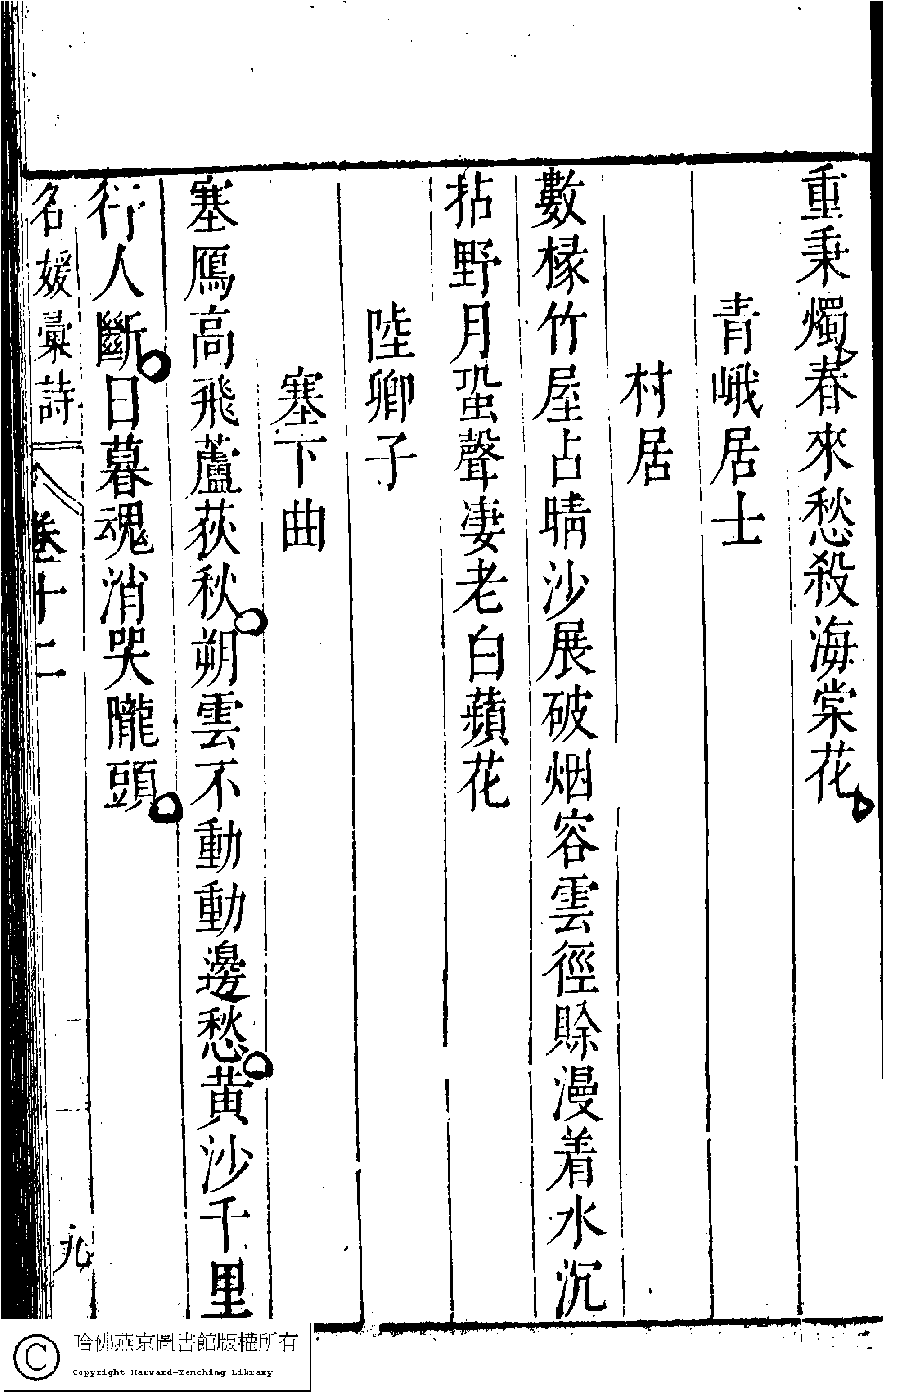 重秉燭春來愁殺海棠花
青峨居士
村居
數椽竹屋占晴沙展破烟容雲徑賖漫着水沉
拈野月蛩聲凄老白蘋花
陸卿子
塞下曲
塞鴈高飛蘆荻秋朔雲不動動邊愁黄沙千里
行人斷日暮魂消哭隴頭
名媛彙詩
卷十二
九
哈佛燕京圖書館版權所有
Copyright Harvard-Yenching Library